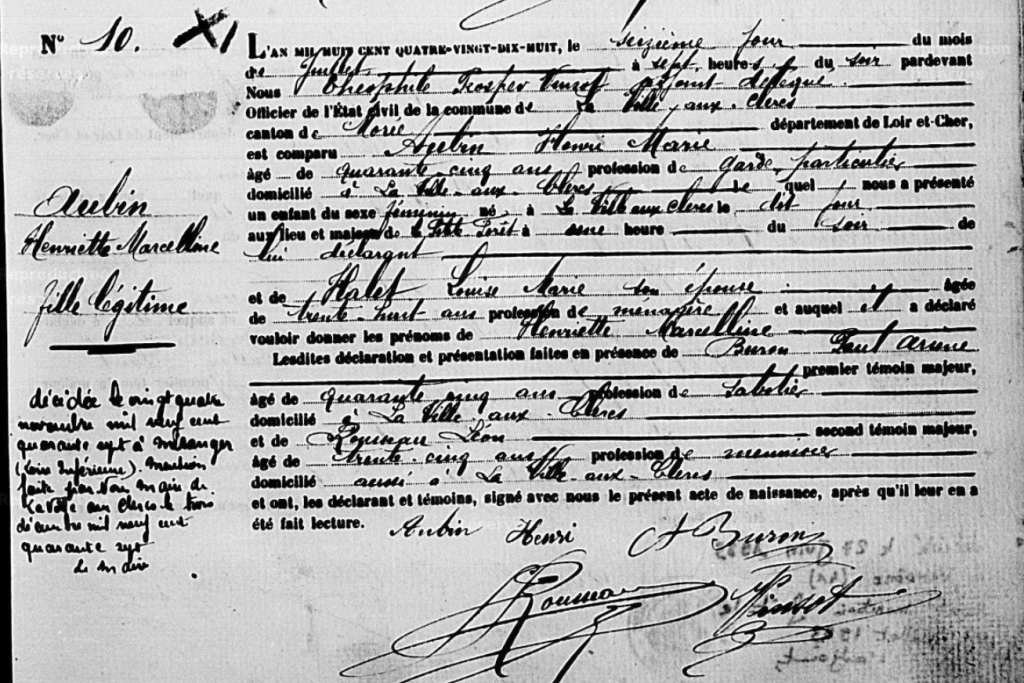 N° 10. XI
L'AN MIL HUIT CENT QUATRE-VINGT-DIX-HUIT, le seizième jour du mois
de Juillet à sept heures du soir pardevant
Nous Théophile Prosper Pinsot adjoint délégué
Officier de l'État civil de la commune de La Ville-aux-Clercs
canton de Morée département de Loir et-Cher,
est comparu Aubin Henri Marie
âgé de quarante-cinq ans profession de garde particulier
domicilié à La Ville-aux-Clercs le quel nous a présenté
un enfant du sexe féminin né à La Ville aux Clercs le dit jour
au lieu et maison de la Petite Forêt à une heure du soir de
lui déclarant
et de Halet Louise Marie son épouse âgée
de trente-huit ans profession de ménagère et auquel il a déclaré
vouloir donner les prénoms de Henriette Marcelline
Lesdites déclaration et présentation faites en présence de Buron Paul
premier témoin majeur,
âgé de quarante cinq ans profession de sabotier
domicilié à La Ville-aux-Clercs
et de Rousseau Léon second témoin majeur,
âgé de trente-cinq ans profession de menuisier
domicilié aussi à La Ville-aux-Clercs
et ont, les déclarant et témoins, signé avec nous le présent acte de naissance, après qu'il leur en a
été fait lecture.
Aubin Henri A Buron
Rousseau Pinsot
Aubin
Henriette Marcelline
fille légitime
décédée le vingt quatre
novembre mil neuf cent
quarante sept à Mésanger
(Loire Inférieure). Mention
faite par Nous Maire de
La Ville aux Clercs le trois
décembre mil neuf cent
quarante sept
Le Maire